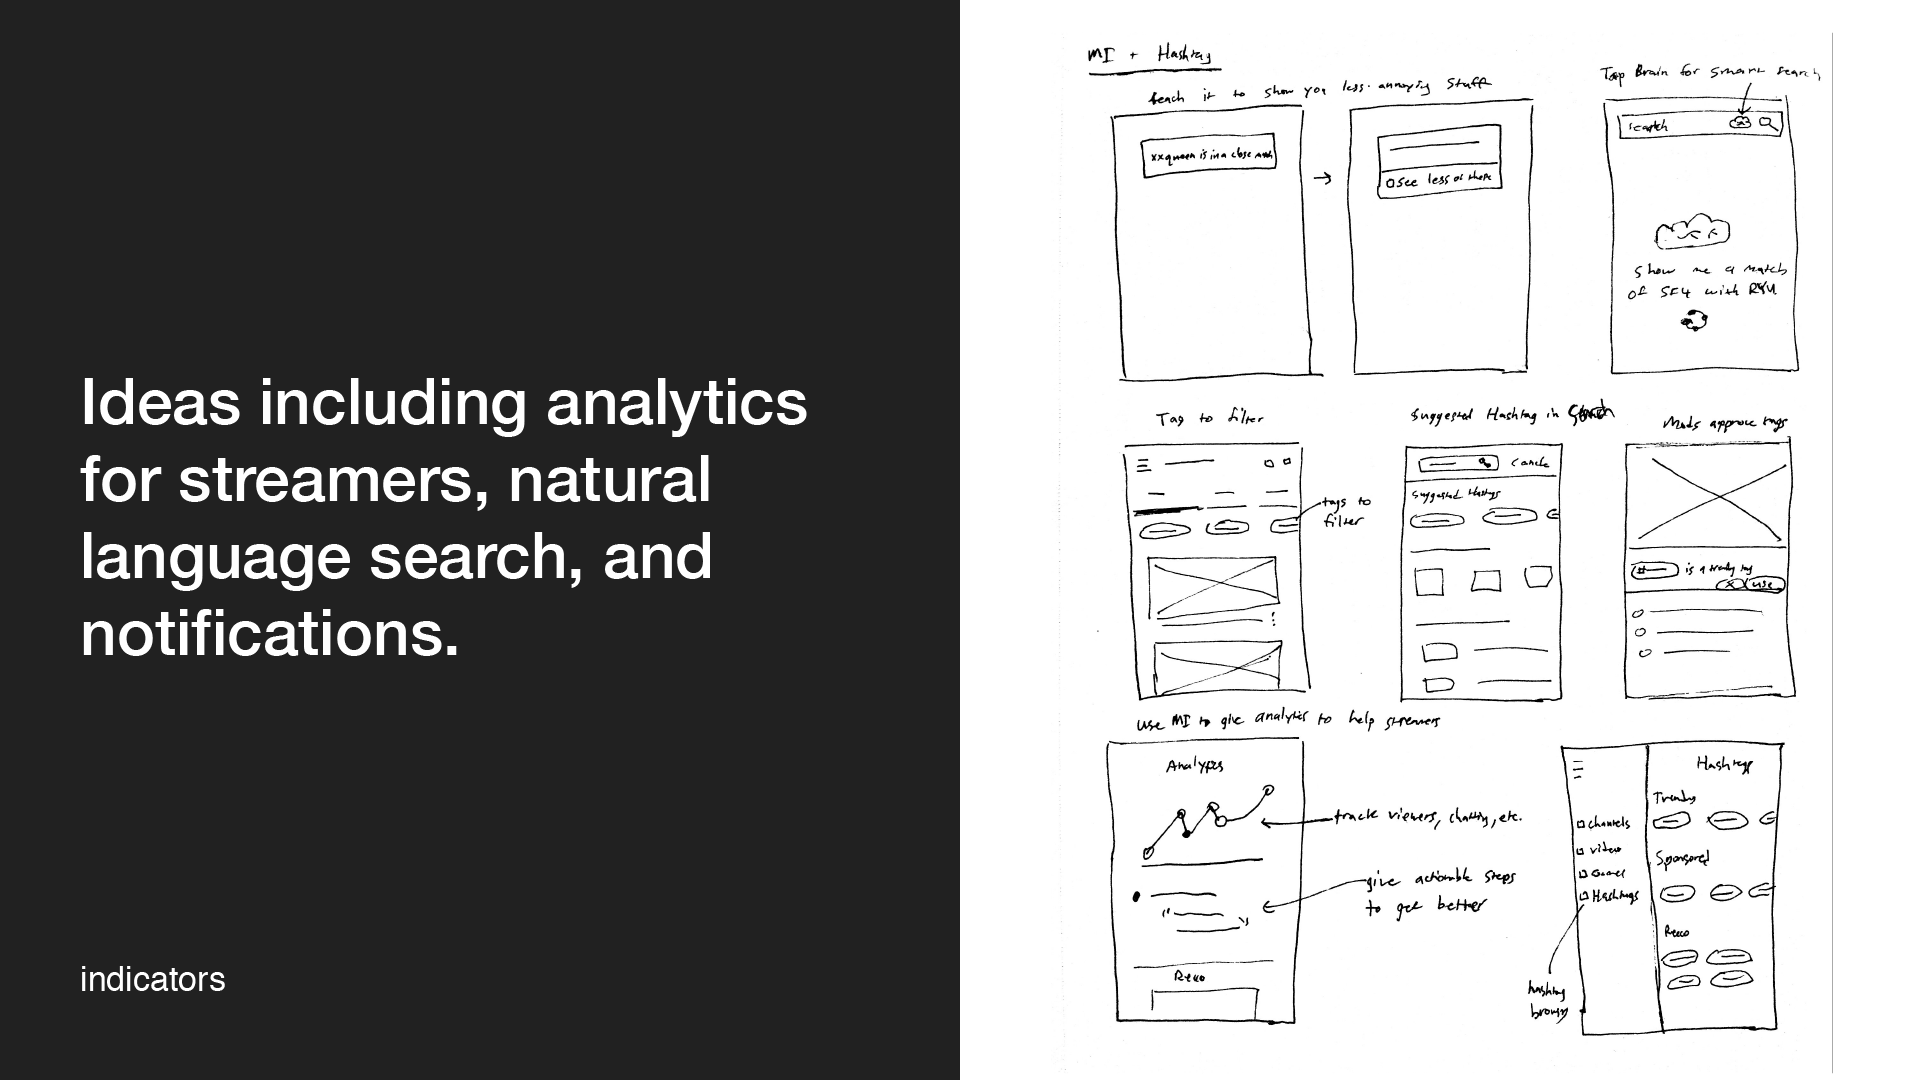 Ideas including analytics
for streamers, natural
language search, and
notifications.
indicators
MI + Hashtag
teach it to show you less annoying stuff
xxqueen is in a close match
→
see less of these
Tap Brain for smart search
search
show me a match
of SF4 with RYU
Tag to filter
tags to
filter
Suggested Hashtag in
Cancle
suggested Hashtags
Mods approve tags
#
is a trendy tag
x
use
use MI to give analytics to help streamers
Analytics
track viewers, chatting, etc.
give actionable steps
to get better
Reco
channels
video
Games
Hashtags
hashtag
browsing
Hashtags
Trendy
Sponsored
Reco